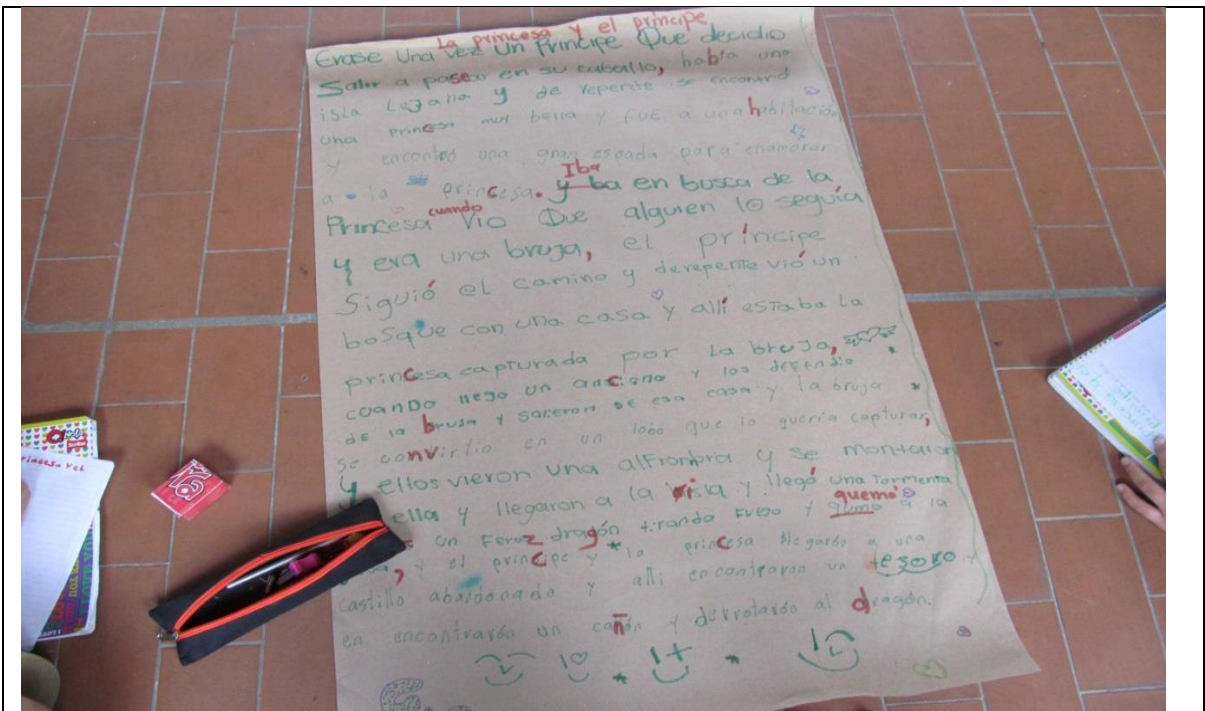 La princesa y el príncipe
Erase Una vez Un Principe Que decidio
Salir a pasear en su caballo, había una
isla Legana y de repente se encontró
una princesa muy bella y fue a una habitación
y encontró una gran espada para enamorar
a la princesa. Iba y ba en busca de la
Princesa cuando Vio Que alguien lo seguía
y era una bruja, el príncipe
Siguió el camino y derepente vió un
bosque con una casa y allí estaba La
princesa capturada por La bruja,
cuando llego un anciano y los defendio
de la bruja y salieron de esa casa y la bruja
se convirtio en un lobo que lo quería capturar,
y ellos vieron una alfrombra y se montaron
ella y llegaron a la isla y llegó una Tormenta
un Feroz dragón tirando fuego y quemó qumo a la
, y el principe y la princesa llegarón a una
castillo abandonado y alli encontraron un tesoro y
en encontrarón un cañón y derrotarón al dragón.